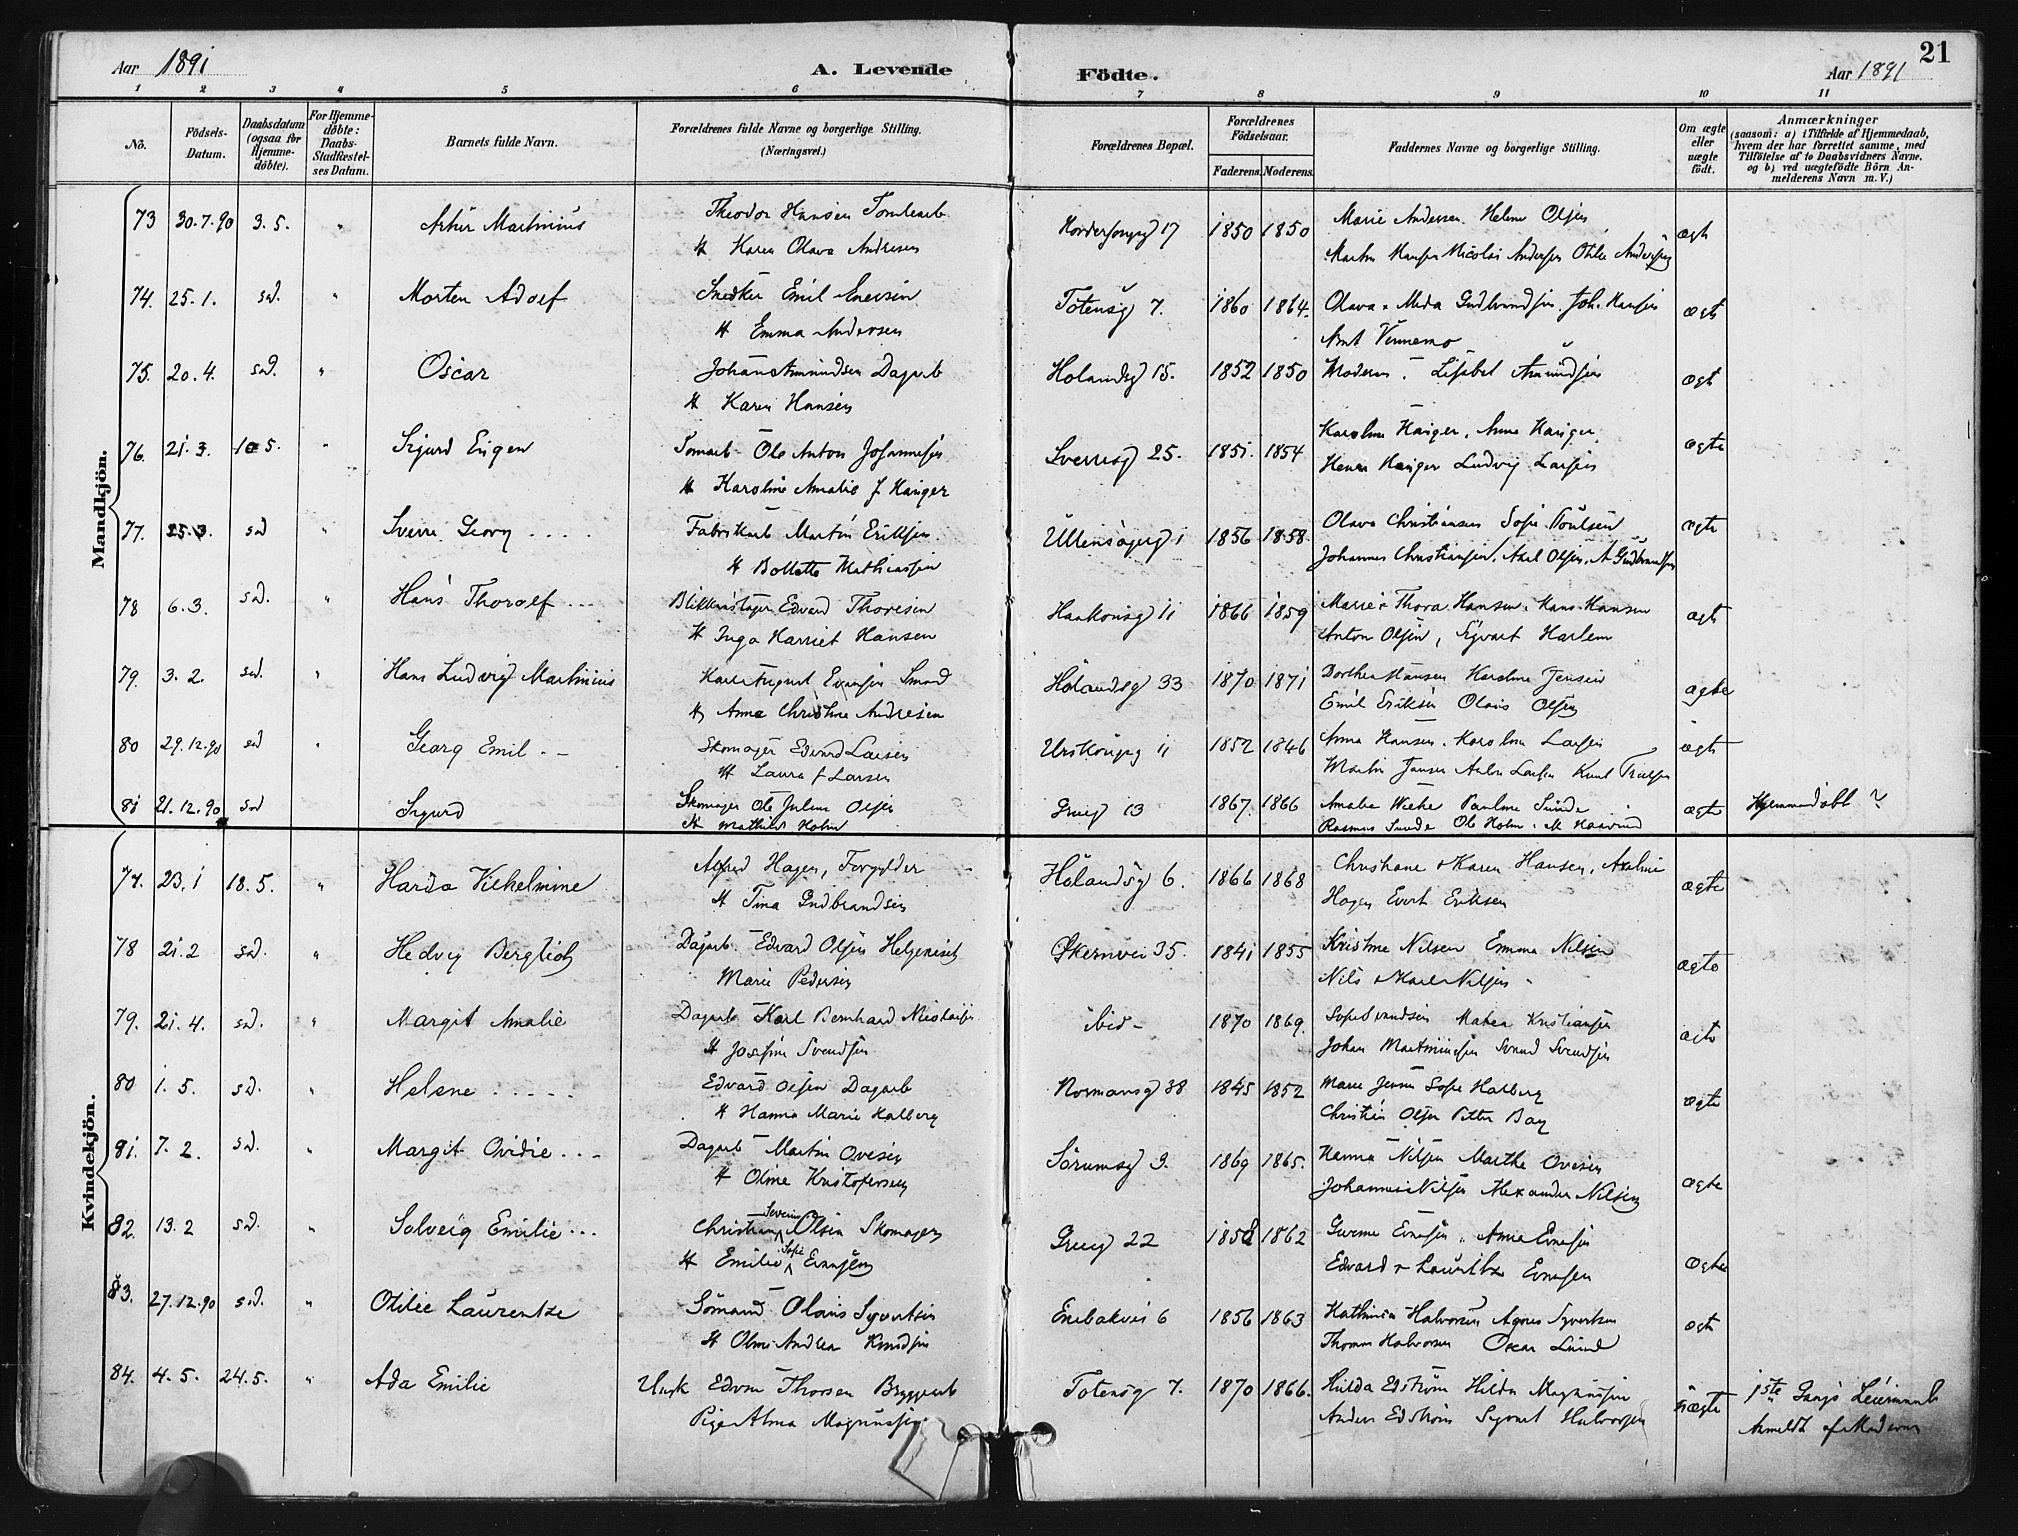 Aar 1891
A. Levende
Födte.
Aar 1891
21
1 2 3 4 5 6 7 8 9 10 11
No.
Födsels-Datum.
Daabsdatum (ogsaa for Hjemme-döbte).
For Hjemme-döbte: Daabs-Stadfæstel-ses Datum.
Barnets fulde Navn.
Forældrenes fulde Navne og borgerlige Stilling. (Næringsvei.)
Forældrenes Bopæl.
Forældrenes Födselsaar.
Faderens. Moderens.
Faddernes Navne og borgerlige Stilling.
Om ægte eller uægte födt.
Anmærkninger
(saasom: a) i Tilfælde af Hjemmedaab,
hvem der har forrettet samme, med
Tilföielse af to Daabsvidners Navne.
og b) ved uægtefödte Börn An-
melderens Navn m. V.)
Mandkjön.
73 30.7.90 3.5. " Artur Martinius Theodor Hansen 1850 1850 Marie Andersen. Helene Olsen ægt
H Karen Olava Andresen Martin Hansen Nicolai Andersen Otilie Andersen
74. 25.1. sad. " Morten Adolf Snedker Emil Totensg 7. 1860 1864. Olava Gudbrandsen Joh. Hansen ægte
H Emma Andersen
75. 20.4. sad. " Oscar Johan Amundsen Dagarb Hölandsg 15. 1852 1850 Moderen. Lisabet Amundsen ægt
H Karen Hansen
76. 21.3. 10.5. " Sigurd Ole Anton Johannesen Sverresg 25. 1851. 1854 Karoline Anna ægte
H Karoline Amalie Ludvig Larsen
77. 25.3. sad " Sverre Georg Fabrikarb Martin Eriksen. Ullensagerg 1 1856 1858. Olava Christiansen Sofie Poulsen ægte
H Bollette Mathiassen Johannes Christiansen. Axel Olsen. A Gudbrandsen
78 6.3. sad. " Hans Thorolf Edvard Thoresen Haakonsg 11 1866 1859 Marie & Thora Hansen. Hans Hansen ægte
H Inga Harriet Hansen Anton Olsen, Sigvart Harlem
79. 3.2. sad. " Hans Ludvig Martinius Karl August Evensen Smed Hölandsg 33 1870 1871 Dorthea Hansen Karoline Jensen ægte
H Anna Christine Andresen Emil Eriksen Olaus Olsen
80 29.12.90 sad " Georg Emil Skomager Edvard Larsen Urskougsg 11 1852 1846 Anna Hansen. Karoline Larsen ægte
H Laura f Larsen Martin Jansen Anton Larsen Knut
81 21.12.90 sad Sigurd Skomager Ole Julius Olsen Grueg 13 1867. 1866 Amalie Pauline Sunde ægte Hjemmedöbt ?
H Mathilde Holm Rasmus Sunde Ole Holm.
Kvindekjön.
77. 23.1 18.5. " Harda Vilhelmine Alfred Hagen, Forgylder Hölandsg 6. 1866 1868 Christiane & Karen Hansen, ægte
H Tina Gudbrandsen Hagen Evert Eriksen
78 21.2 sad. " Hedvig Bergliot Dagarb Edvard Olsen Økernvei 35. 1841 1855 Kristine Nilsen Emma Nilsen ægte
Marie Pedersen Nils & Karl Nilsen
79. 21.4. sad. " Margit Amalie Dagarb Karl Bernhard ibid- 1870 1869. Sofie Svendsen Kristiansen ægte
H Josefine Svendsen Johan Martinusen Svend Svendsen
80 1.5. sad. " Helene Edvard Olsen Dagarb Normansg 38 1845 1852 Marie Jensen Sofie Halberg ægte
H Hanna Marie Halberg Christian Olsen Petter Bay
81. 7.2. sad. " Margit Ovidie Dagarb Martin Ovesen Sörumsg 3. 1869 1865. Hanna Nilsen Marthe Ovesen ægte
H Oline Kristofersen Johannes Nilsen Alexander Nilsen
82. 13.2 sad. " Solveig Emilie Christian Severin Olsen Skomager Grueg 22 1858 1862 Anna Evensen ægte
H Emilie Sofie Evensen Edvard & Lauritz Evensen
83. 27.12.90 sad. " Otilie Laurentze Sömand Olaus Syvertsen Enebakvei 6 1856 1863 Halvorsen Agnes Syvertsen ægte
H Oline Andrea Knudsen Thomas Halvorsen Oscar Lund
84. 4.5. 24.5. " Ada Emilie Ungk Edvin Thorsen Bryggearb Totensg 7. 1870 1866. Hulda Edström Hilda Magnussen uægte 1ste Gangs Leiermaal
Pige Alma Magnussen Anders Edström Sigvart Halvorsen Anmeldt af Moderen